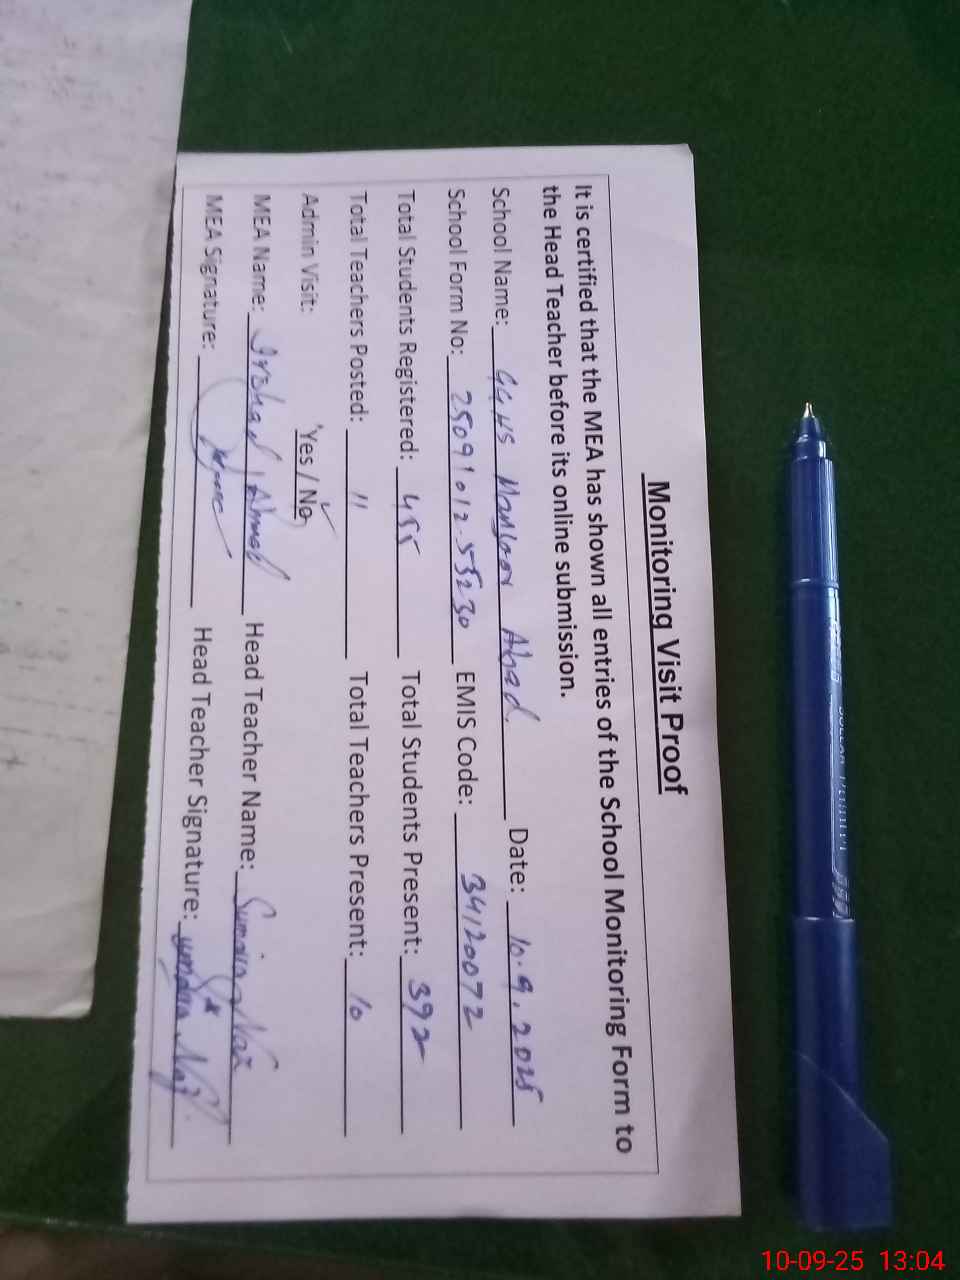 Monitoring Visit Proof
It is certified that the MEA has shown all entries of the School Monitoring Form to
the Head Teacher before its online submission.
School Name: GGHS Manzoor Abad Date: 10.9.2025
School Form No: 25091012-55230 EMIS Code: 34120072
Total Students Registered: 455 Total Students Present: 392
Total Teachers Posted: 11 Total Teachers Present: 10
Admin Visit: Yes / No
MEA Name: Irshad Ahmad Head Teacher Name: Sumaira Naz
MEA Signature: Head Teacher Signature:
DOLLAR
10-09-25 13:04